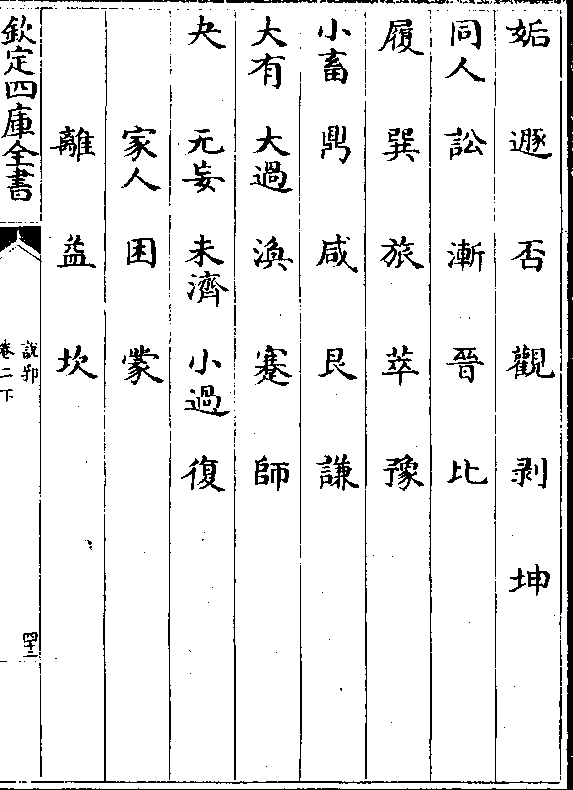 姤 遯 否 觀 剥 坤
同人 訟 漸 晉 比
履 巽 旅 萃 豫
小畜 鼎 咸 艮 謙
大有 大過 渙 蹇 師
夬 无妄 未濟 小過 復
家人 困 蒙
離 益 坎
欽定四庫全書
卷二下
四十二